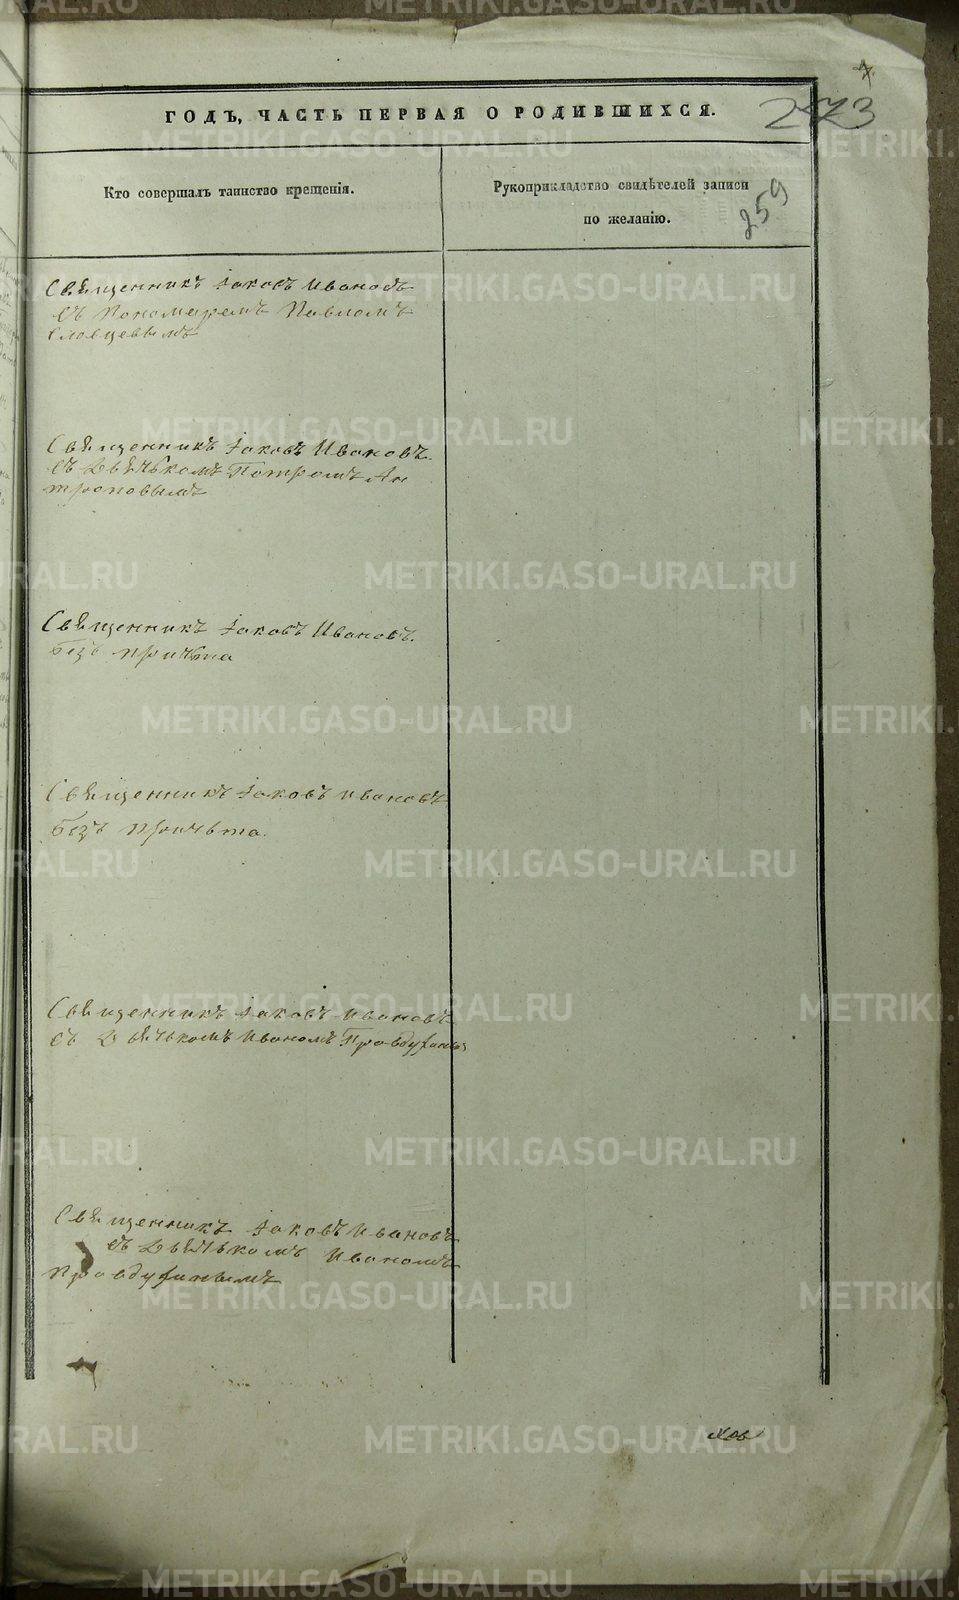 7.
ГОДЪ, ЧАСТЬ ПЕРВАЯ О РОДИВШИХСЯ.
273
Кто совершалъ таинство крещенія.
Рукоприкладство свидѣтелей записи
по желанію.
259
Священникъ Іаковъ Ивановъ
съ Пономаремъ Павломъ
Словцевымъ
Священникъ Іаковъ Ивановъ.
съ Дьячькомъ Петромъ Ан
троповымъ
Священникъ Іаковъ Ивановъ.
безъ причьта
Священникъ Іаковъ Ивановъ
безъ причьта.
Священникъ Іаковъ Ивановъ
съ Дьячькомъ Иваномъ
Священникъ Іаковъ Ивановъ
съ Дьячькомъ Иваномъ
METRIKI.GASO-URAL.RU